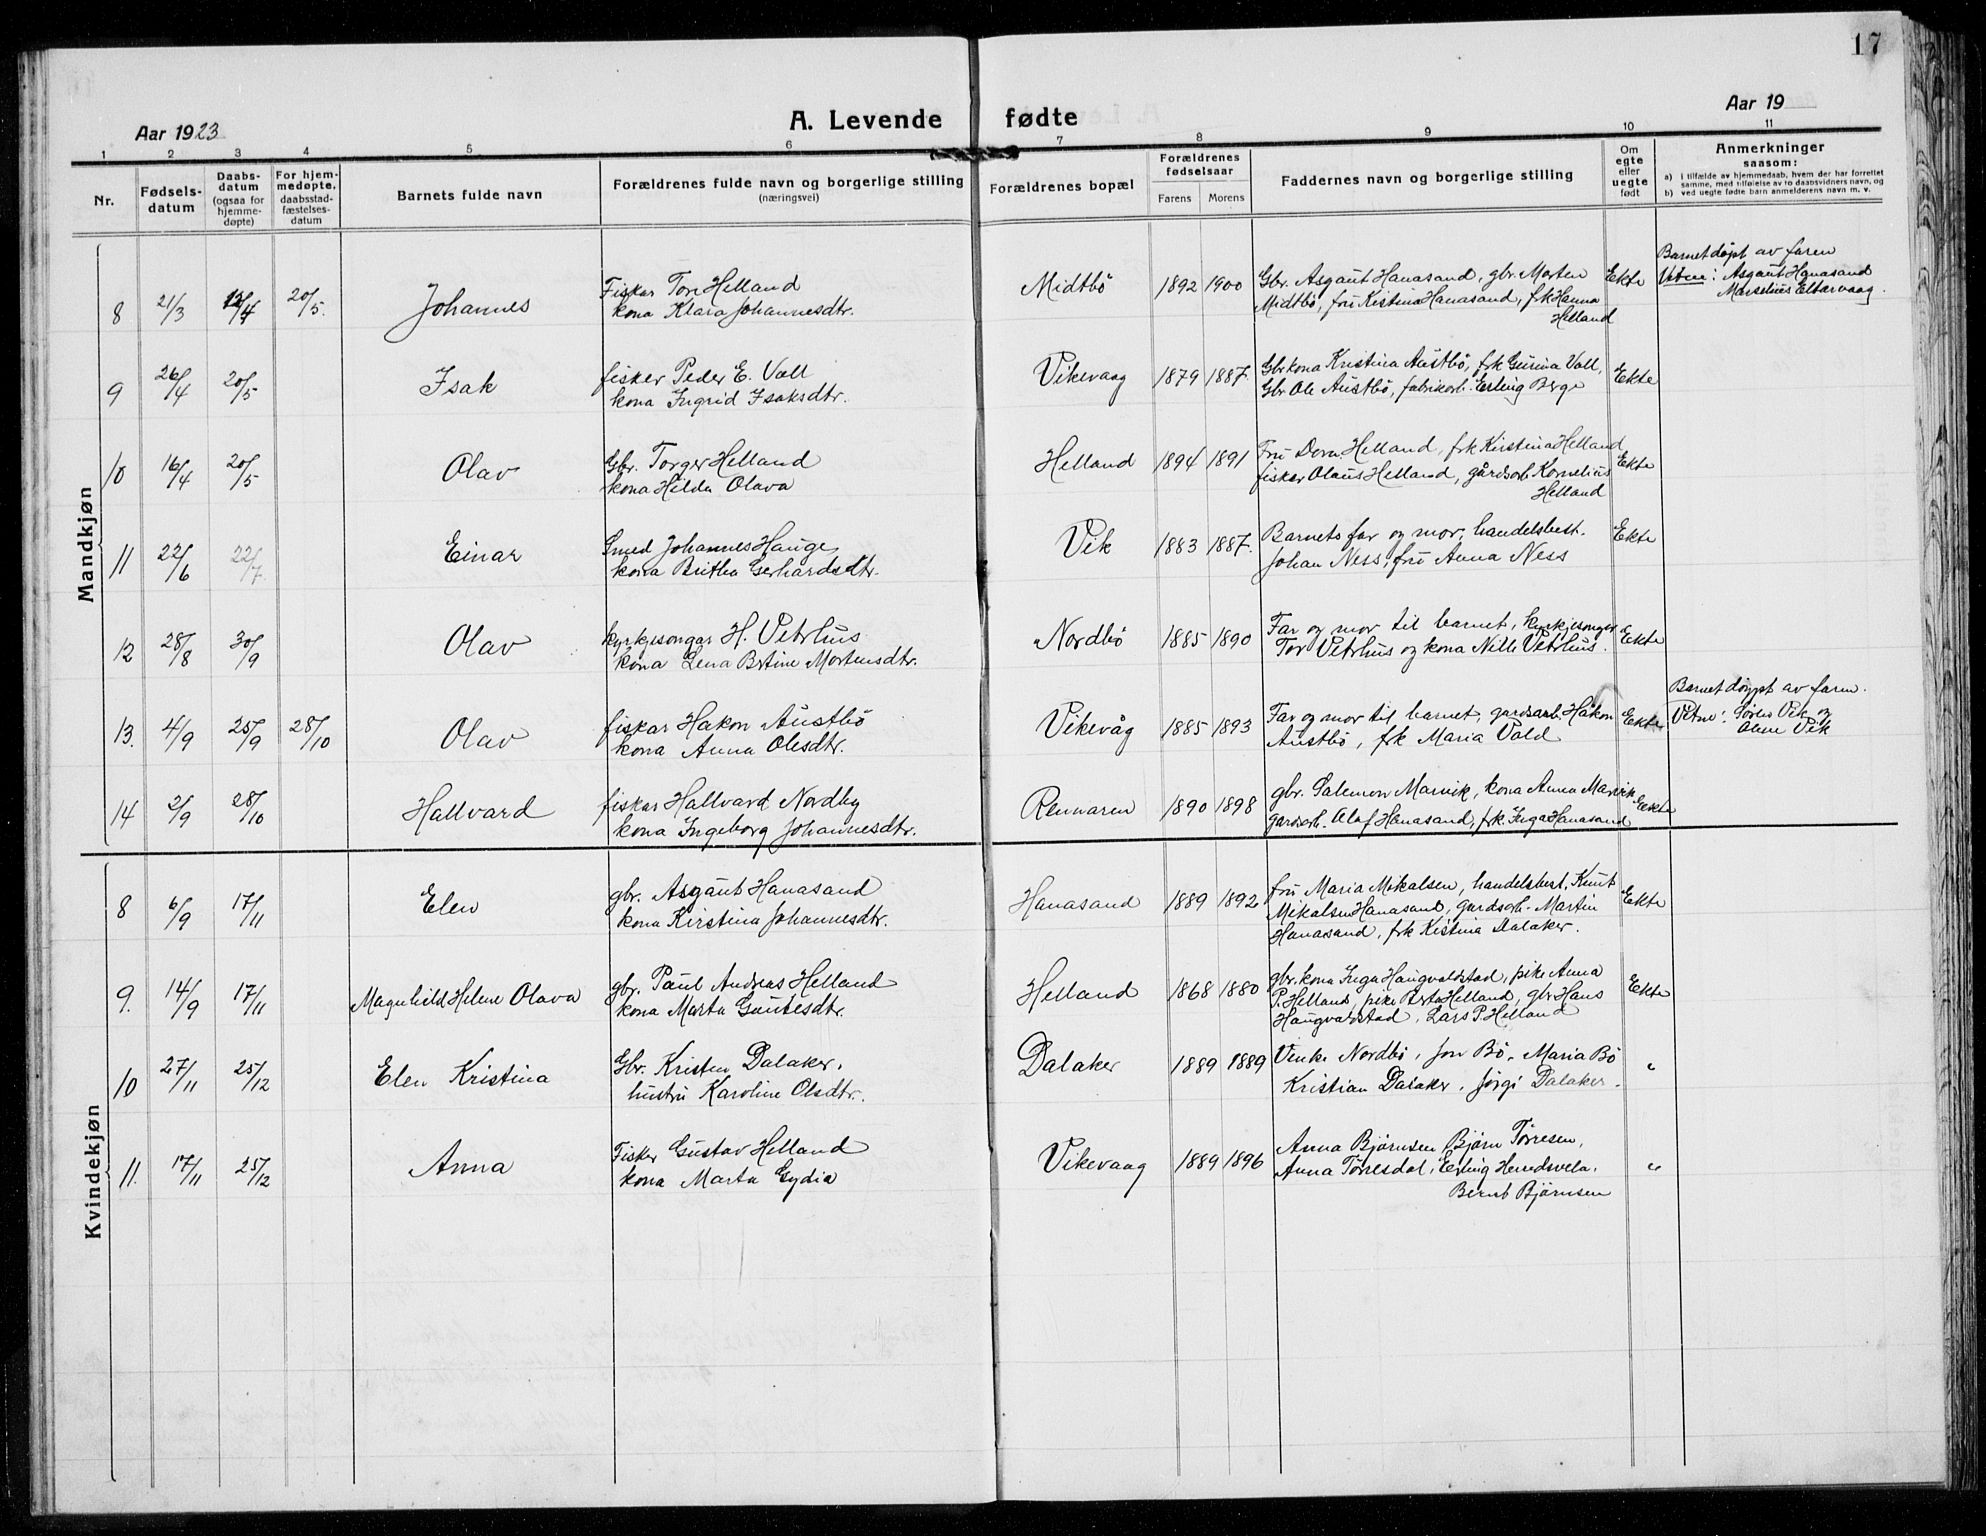 17
Aar 1923
A. Levende fødte
Aar 19
1 2 3 4 5 6 7 8 9 10 11
Nr.
Fødsels-
datum
Daabs-
datum
(ogsaa for
hjemme-
døpte)
For hjem-
medøpte,
daabsstad-
fæstelses-
datum
Barnets fulde navn
Forældrenes fulde navn og borgerlige stilling
(næringsvei)
Forældrenes bopæl
Forældrenes
fødselsaar
Farens Morens
Faddernes navn og borgerlige stilling
Om
egte
eller
uegte
født
Anmerkninger
saasom:
a) i tilfælde av hjemmedaab, hvem der har forrettet
samme, med tilføielse av to daabsvidners navn, og
b) ved uegte fødte barn anmelderens navn m. v.
Mandkjøn
8 21/3 12/4 20/5. Johannes
Fiskar Tore Helland
kona Klara Johannesdtr.
Midtbö 1892 1900
Gbr. Asgaut Hanasand, gbr. Morten
Midtbö, fru Kistina Hanasand, frk Hanna
Helland
Ekte
Barnet døpt av faren
Vitne: Asgaut Hanasand
Marselius Eltarvaag.
9 26/4 20/5 Isak
fisker Peder E. Vall
kona Ingrid Isaksdtr.
Vikevaag 1879 1887.
Gbr kona Kristina Austbö, frk Gurina Vall,
Gbr. Ole Austbö, fabrikarb. Erling Berge
Ekte
10 16/4 20/5 Olav
Gbr. Torger Helland
kona Hilda Olava
Helland 1894 1891
Fru Dora Helland, frk Kirstina Helland
fisker Olaus Helland, gårdsarb. Kornelius
Helland
Ekte
11 22/6 22/7. Einar
Smed Johannes Hauge,
kona Britha Gerhardsdtr.
Vik 1883 1887.
Barnets far og mor, handelsbest.
Johan Ness, fru Anna Ness
Ekte
12 28/8 30/9 Olav
kyrkjesongar H. Vetrhus
kona Lena Bertine Mortensdtr.
Nordbö 1885 1890
Far og mor til barnet, kyrkjesonger
Tor Vetrhus og kona Nille Vetrhus.
Ekte
13. 4/9 25/9 28/10 Olav
fiskar Hakon Austbö
kona Anna Olesdtr.
Vikevåg 1885 1893
Far og mor til barnet, gardsarb. Håkon
Austbö, frk Maria Vold
Ekte
Barnet døypt av faren.
Vitne: Sören Vik og
Olene Vik
14 2/9 28/10 Hallvard
fiskar Hallvard Nordby
kona Ingeborg Johannesdtr.
Rennaren 1890 1898
gbr. Salemon Marvik, kona Anna Marvik
gardsarb. Olaf Hanasand, frk. Inga Hanasand
Ekte
Kvindekjøn
8 6/9 17/11 Elen
gbr. Asgaut Hanasand
kona Kirstina Johannesdtr.
Hanasand 1889 1892
fru Maria Mikalsen, handelsbest. Knut
Mikalsen Hanasand, gardsarb. Martin
Hanasand, frk Kistina Dalaker.
Ekte
9. 14/9 17/11 Magnhild Helene Olava
gbr. Paul Andreas Helland
kona Marta Gautesdtr.
Helland 1868 1880
gbr. kona Inga Haugvaldstad, pike Anna
P. Helland, pike Berta Helland, gbr Hans
Haugvaldstad, Lars P. Helland
Ekte
10 27/11 25/12 Elen Kristina
Gbr. Kristen Dalaker,
hustru Karoline Olsdtr.
Dalaker 1889 1889
Vinke Nordbö, Jon Bö, Maria Bö
Kristian Dalaker, Jørgi Dalaker.
"
11. 17/11 25/12 Anna
Fisker Gustav Helland
kona Marta Lydia
Vikevaag 1889 1896
Anna Bjørnsen, Bjørn Tørresen,
Anna Tørresdal, Erling Herredsvela,
Bernt Bjørnsen
"